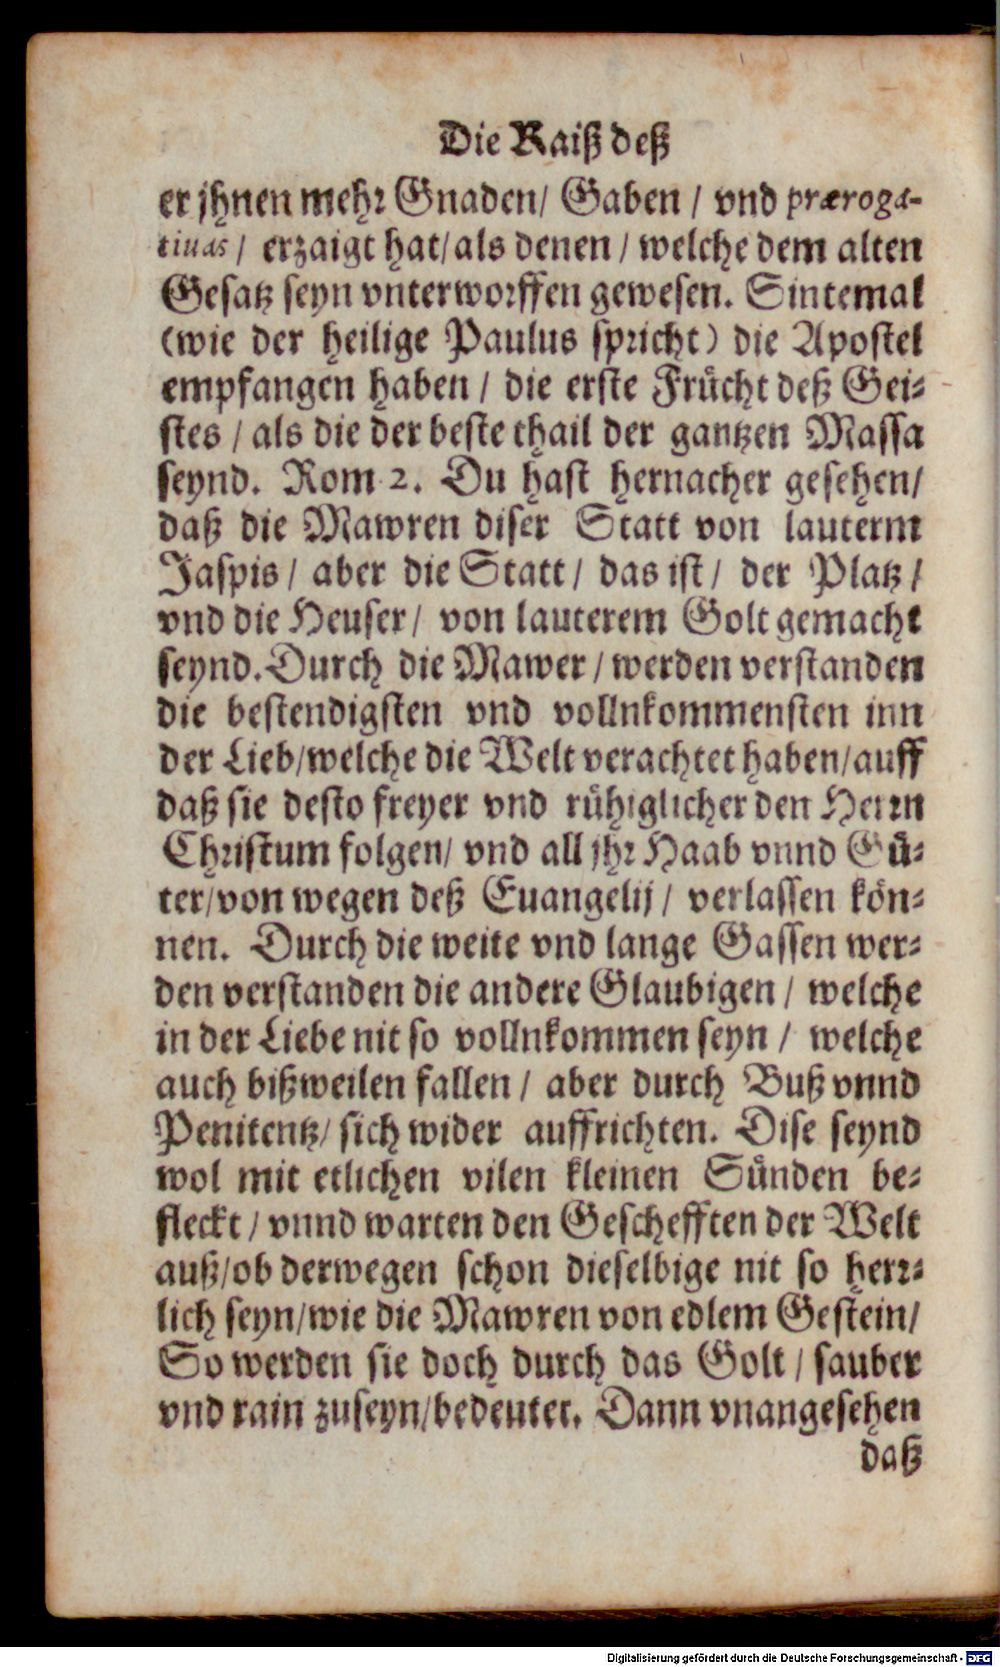 Die Raiß deß
er jhnen mehr Gnaden/ Gaben / vnd præroga-
tiuas / erzaigt hat/als denen / welche dem alten
Gesatz seyn vnterworffen gewesen. Sintemal
(wie der heilige Paulus spricht) die Apostel
empfangen haben / die erste Frücht deß Gei-
stes / als die der beste thail der gantzen Massa
seynd. Rom 2. Du hast hernacher gesehen/
daß die Mawren diser Statt von lauterm
Jaspis / aber die Statt / das ist / der Platz /
vnd die Heuser / von lauterem Golt gemacht
seynd. Durch die Mawer / werden verstanden
die bestendigsten vnd vollnkommensten inn
der Lieb/welche die Welt verachtet haben/auff
daß sie desto freyer vnd rühiglicher den Herrn
Christum folgen/ vnd all jhr Haab vnnd Gü-
ter/von wegen deß Euangelij / verlassen kön-
nen. Durch die weite vnd lange Gassen wer-
den verstanden die andere Glaubigen / welche
in der Liebe nit so vollnkommen seyn / welche
auch bißweilen fallen / aber durch Buß vnnd
Penitentz/ sich wider auffrichten. Dise seynd
wol mit etlichen vilen kleinen Sünden be-
fleckt / vnnd warten den Geschefften der Welt
auß/ob derwegen schon dieselbige nit so herr-
lich seyn/wie die Mawren von edlem Gestein/
So werden sie doch durch das Golt / sauber
vnd rain zuseyn/bedeutet. Dann vnangesehen
daß
Digitalisierung gefördert durch die Deutsche Forschungsgemeinschaft - DFG